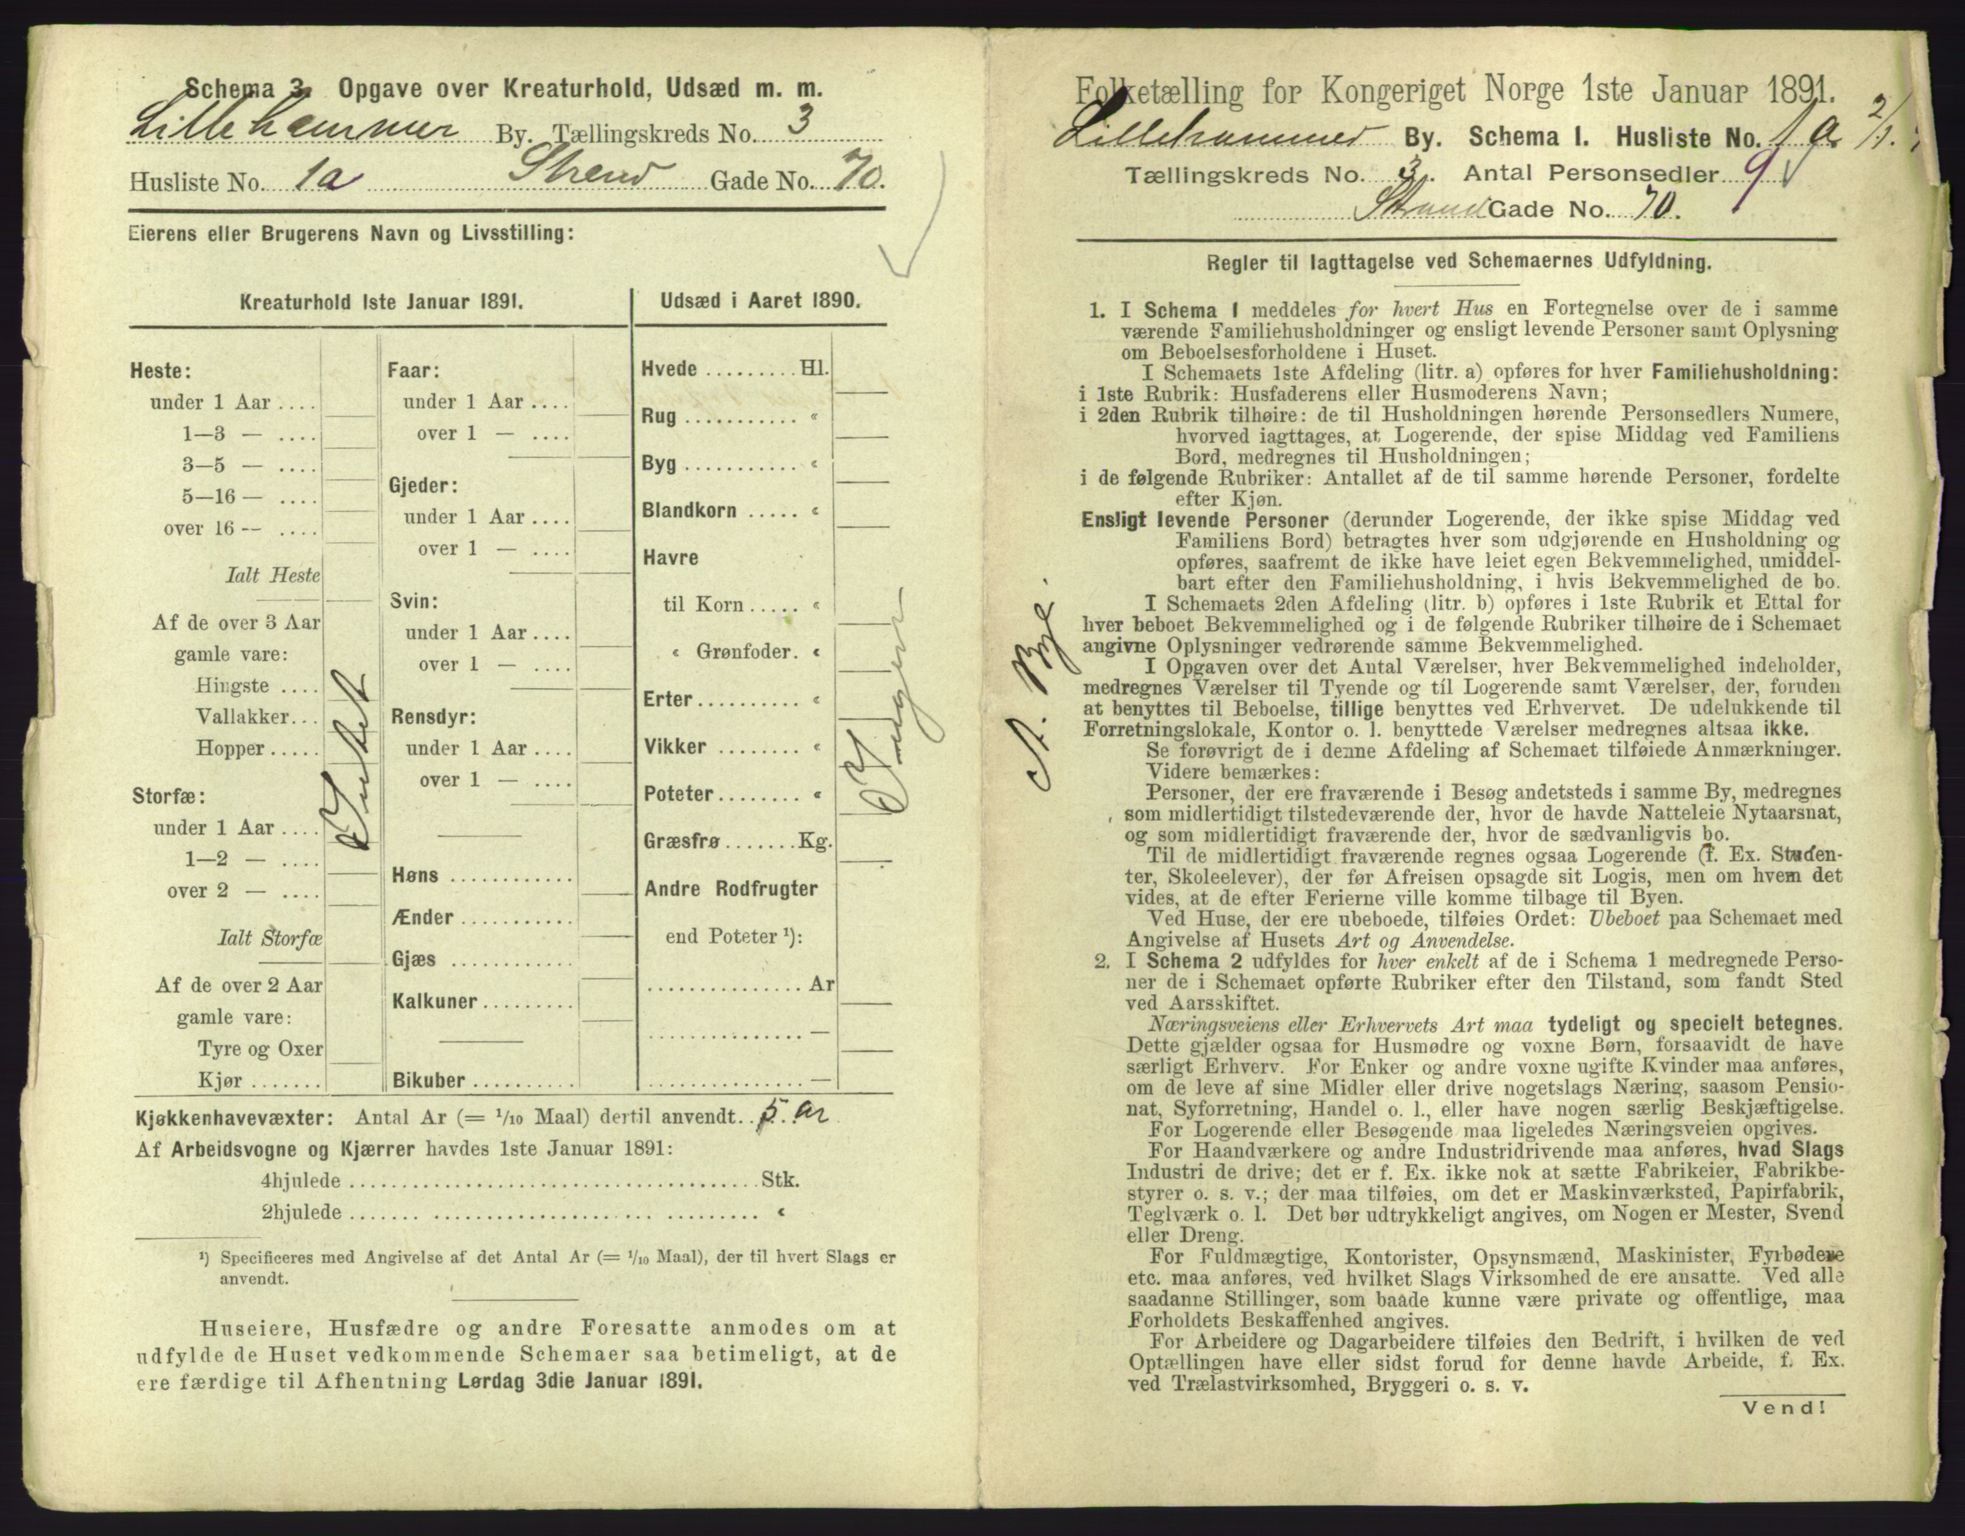 Schema 3. Opgave over Kreaturhold, Udsæd m. m.
Lillehammer By. Tællingskreds No. 3
Husliste No. 1a Strand Gade No. 70.
Eierens eller Brugerens Navn og Livsstilling:
Kreaturhold 1ste Januar 1891.
Heste:
under 1 Aar ....
1—3 — ....
3—5 — ....
5—16 — ....
over 16 -- ....
Ialt Heste
Af de over 3 Aar
gamle vare:
Hingste ....
Vallakker...
Hopper .....
Storfæ:
under 1 Aar ....
1—2 — ....
over 2 — ....
Ialt Storfæ
Af de over 2 Aar
gamle vare:
Tyre og Oxer
Kjør .......
Intet
Faar:
under 1 Aar ....
over 1 — ....
Gjeder:
under 1 Aar ....
over 1 — ....
Svin:
under 1 Aar ....
over 1 — ....
Rensdyr:
under 1 Aar ....
over 1 — ....
Høns ............
Ænder ...........
Gjæs ............
Kalkuner.........
Bikuber ..........
Udsæd i Aaret 1890.
Hvede ......... Hl.
Rug ........... «
Byg ........... «
Blandkorn ..... «
Havre
til Korn ..... «
« Grønfoder. «
Erter .......... «
Vikker ......... «
Poteter ........ «
Græsfrø ....... Kg.
Andre Rodfrugter
end Poteter ¹):
............... Ar
............... —
............... —
Ingen
Kjøkkenhavevæxter: Antal Ar (= 1/10 Maal) dertil anvendt.. 5. ar
Af Arbeidsvogne og Kjærrer havdes 1ste Januar 1891:
4hjulede ....................................... Stk.
2hjulede ....................................... «
¹) Specificeres med Angivelse af det Antal Ar (= 1/10 Maal), der til hvert Slags er
anvendt.
Huseiere, Husfædre og andre Foresatte anmodes om at
udfylde de Huset vedkommende Schemaer saa betimeligt, at de
ere færdige til Afhentning Lørdag 3die Januar 1891.
Folketælling for Kongeriget Norge 1ste Januar 1891.
Lillehammer By. Schema I. Husliste No. 1a 2/1
Tællingskreds No. 3. Antal Personsedler 9
Strand Gade No. 70.
Regler til Iagttagelse ved Schemaernes Udfyldning.
A. Bye.
1. I Schema 1 meddeles for hvert Hus en Fortegnelse over de i samme
værende Familiehusholdninger og ensligt levende Personer samt Oplysning
om Beboelsesforholdene i Huset.
I Schemaets 1ste Afdeling (litr. a) opføres for hver Familiehusholdning:
i 1ste Rubrik: Husfaderens eller Husmoderens Navn;
i 2den Rubrik tilhøire: de til Husholdningen hørende Personsedlers Numere,
hvorved iagttages, at Logerende, der spise Middag ved Familiens
Bord, medregnes til Husholdningen;
i de følgende Rubriker: Antallet af de til samme hørende Personer, fordelte
efter Kjøn.
Ensligt levende Personer (derunder Logerende, der ikke spise Middag ved
Familiens Bord) betragtes hver som udgjørende en Husholdning og
opføres, saafremt de ikke have leiet egen Bekvemmelighed, umiddel-
bart efter den Familiehusholdning, i hvis Bekvemmelighed de bo.
I Schemaets 2den Afdeling (litr. b) opføres i 1ste Rubrik et Ettal for
hver beboet Bekvemmelighed og i de følgende Rubriker tilhøire de i Schemaet
angivne Oplysninger vedrørende samme Bekvemmelighed.
I Opgaven over det Antal Værelser, hver Bekvemmelighed indeholder,
medregnes Værelser til Tyende og til Logerende samt Værelser, der, foruden
at benyttes til Beboelse, tillige benyttes ved Erhvervet. De udelukkende til
Forretningslokale, Kontor o. l. benyttede Værelser medregnes altsaa ikke.
Se forøvrigt de i denne Afdeling af Schemaet tilføiede Anmærkninger.
Videre bemærkes:
Personer, der ere fraværende i Besøg andetsteds i samme By, medregnes
som midlertidigt tilstedeværende der, hvor de havde Natteleie Nytaarsnat,
og som midlertidigt fraværende der, hvor de sædvanligvis bo.
Til de midlertidigt fraværende regnes ogsaa Logerende (f. Ex. Studen-
ter, Skoleelever), der før Afreisen opsagde sit Logis, men om hvem det
vides, at de efter Ferierne ville komme tilbage til Byen.
Ved Huse, der ere ubeboede, tilføies Ordet: Ubeboet paa Schemaet med
Angivelse af Husets Art og Anvendelse.
2. I Schema 2 udfyldes for hver enkelt af de i Schema 1 medregnede Perso-
ner de i Schemaet opførte Rubriker efter den Tilstand, som fandt Sted
ved Aarsskiftet.
Næringsveiens eller Erhvervets Art maa tydeligt og specielt betegnes.
Dette gjælder ogsaa for Husmødre og voxne Børn, forsaavidt de have
særligt Erhverv. For Enker og andre voxne ugifte Kvinder maa anføres,
om de leve af sine Midler eller drive nogetslags Næring, saasom Pensio-
nat, Syforretning, Handel o. l., eller have nogen særlig Beskjæftigelse.
For Logerende eller Besøgende maa ligeledes Næringsveien opgives.
For Haandværkere og andre Industridrivende maa anføres, hvad Slags
Industri de drive; det er f. Ex. ikke nok at sætte Fabrikeier, Fabrikbe-
styrer o. s. v.; der maa tilføies, om det er Maskinværksted, Papirfabrik,
Teglværk o. l. Det bør udtrykkeligt angives, om Nogen er Mester, Svend
eller Dreng.
For Fuldmægtige, Kontorister, Opsynsmænd, Maskinister, Fyrbødere
etc. maa anføres, ved hvilket Slags Virksomhed de ere ansatte. Ved alle
saadanne Stillinger, som baade kunne være private og offentlige, maa
Forholdets Beskaffenhed angives.
For Arbeidere og Dagarbeidere tilføies den Bedrift, i hvilken de ved
Optællingen have eller sidst forud for denne havde Arbeide, f. Ex.
ved Trælastvirksomhed, Bryggeri o. s. v.
Vend!